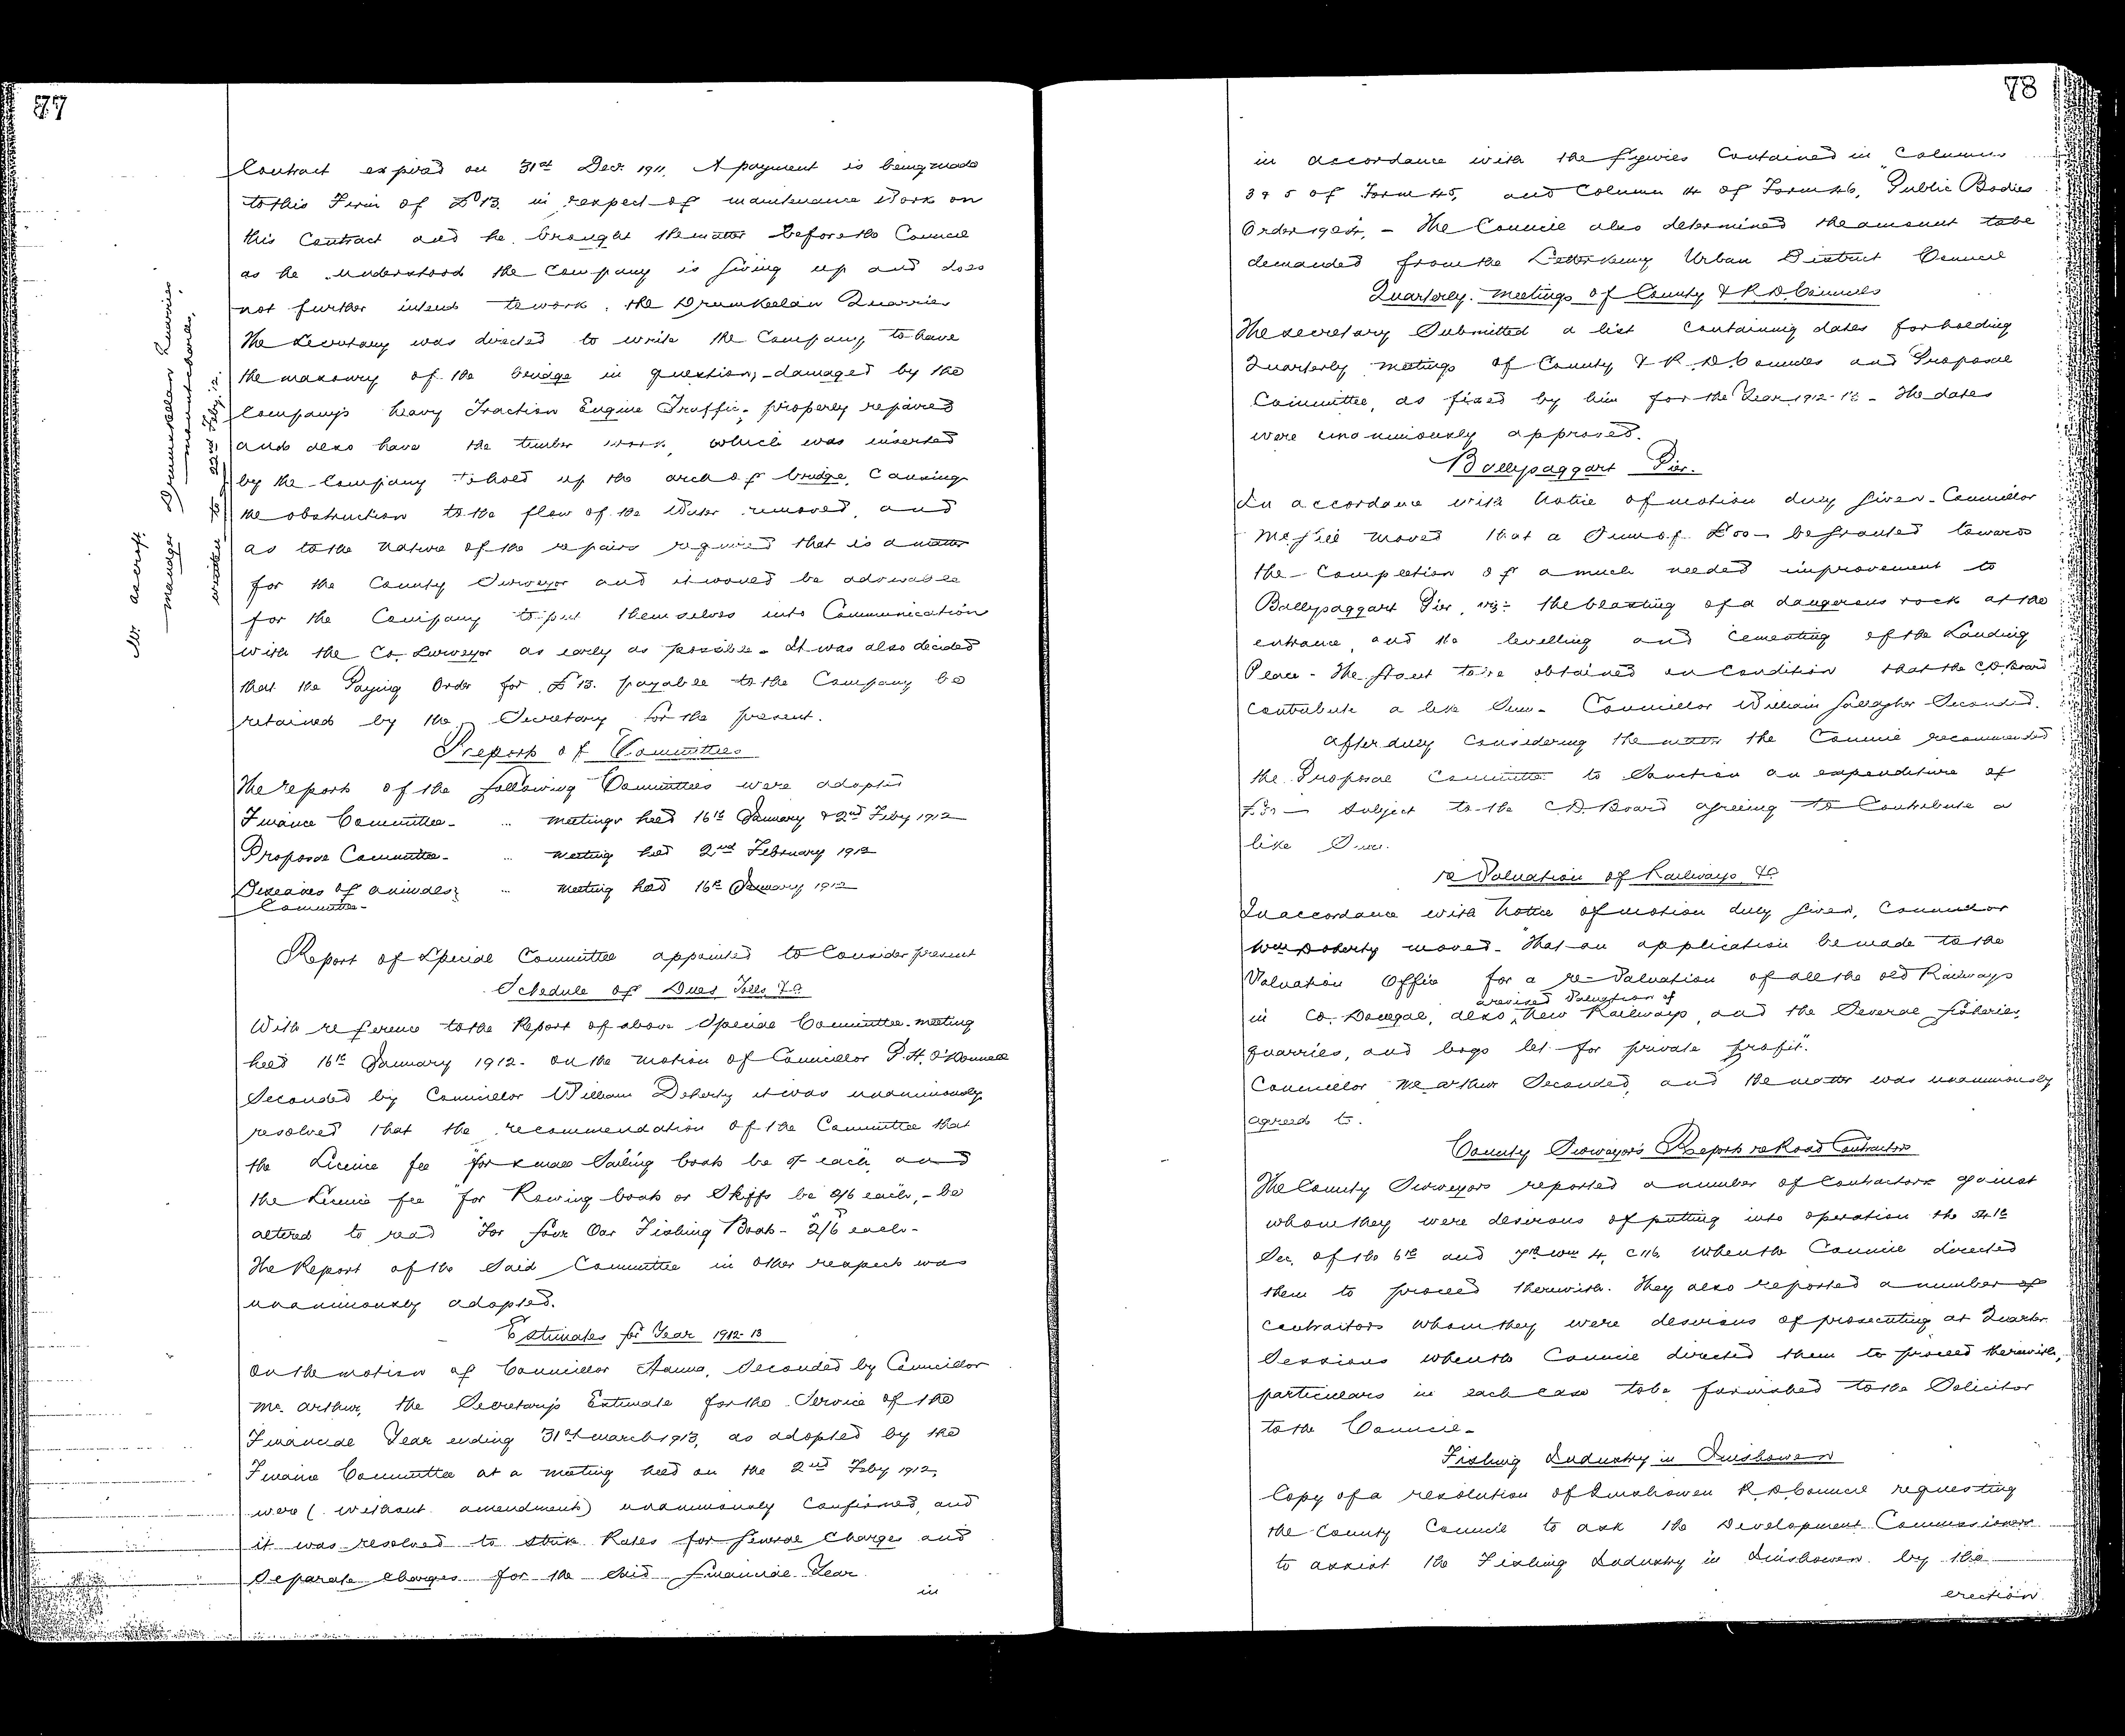 77
Mr. Ascroft
manager Drumkeelan Quarries
mountcharles,
written to 22nd Feby '12.
Contract expired on 31st Decr 1911. A payment is being made
to this Firm of £13. in respect of maintenance work on
this Contract and he brought the matter before the Council
as he understood the Company is giving up and does
not further intend to work, the Drumkeelan Quarries
The Secretary was directed to write the Company to have
the masonry of the bridge in question, - damaged by the
Company's heavy Traction Engine Traffic, properly repaired
and also have the timber work, which was inserted
by the Company to hold up the arch of bridge, Causing
the obstruction to the flow of the Water removed, and
as to the nature of the repairs required that is a matter
for the County Surveyor and it would be advisable
for the Company to put themselves into Communication
with the Co. Surveyor as early as possible - It was also decided
that the Paying Order for £13. payable to the Company be
retained by the Secretary for the present.
Reports of Committees
The reports of the following Committees were adopted
Finance Committee - ... meetings held 16th January & 2nd Feby 1912
Proposal Committee - ... meeting held 2nd February 1912
Diseases of animals } ... meeting held 16th January 1912
Committee -
Report of Special Committee appointed to Consider present
Schedule of Dues Tolls &c
With reference to the Report of above Special Committee meeting
held 16th January 1912 - On the motion of Councillor P. H. O'Donnell
Seconded by Councillor William Doherty it was unanimously
resolved that the recommendation of the Committee that
the Licence fee "for small Sailing boats be 5/- each, and
the Licence fee "for Rowing boats or Skiffs be 2/6 each, - be
altered to read "For four Oar Fishing Boats - 2/6 each -
The Report of the Said Committee in other respects was
unanimously adopted.
Estimates for Year 1912-13
On the motion of Councillor Hanna, Seconded by Councillor
McArthur, the Secretary's Estimate for the Service of the
Financial Year ending 31st March 1913, as adopted by the
Finance Committee at a meeting held on the 2nd Feby 1912,
were (without amendment) unanimously confirmed, and
it was resolved to strike Rates for General Charges and
Separate Charges for the said financial Year
in
78
in accordance with the figures Contained in Columns
3 & 5 of Form 45, and Column 4 of Form 46, Public Bodies
Order 1904, - The Council also determined the amount to be
demanded from the Letterkenny Urban District Council
Quarterly Meetings of County & R.D. Councils
The Secretary Submitted a list Containing dates for holding
Quarterly meetings of County & R.D. Councils and Proposal
Committee, as fixed by him for the Year 1912-13 - The dates
were unanimously approved.
Ballysaggart Pier.
In accordance with notice of motion duly given - Councillor
moved that a Sum of be granted towards
the Completion of a much needed improvement to
Ballysaggart Pier, viz: the blasting of a dangerous rock at the
entrance, and the levelling and Cementing of the Landing
Place - The Grant to be obtained on Condition that the C.D. Board
Contribute a like Sum - Councillor William Gallagher Seconded.
After duly Considering the matter the Council recommended
the Proposal Committee to Sanction an expenditure of
Subject to the C.D. Board agreeing to Contribute a
like Sum.
re Valuation of Railways &c
In accordance with Notice of motion duly given, Councillor
Wm Doherty moved - "That an application be made to the
Valuation Office for a re-Valuation of all the old Railways
in Co. Donegal, also, a revised Valuation of New Railways, and the Several fisheries,
quarries, and bogs let for private profit."
Councillor McArthur Seconded, and the matter was unanimously
agreed to.
County Surveyor's Reports re Road Contractors
The County Surveyors reported a number of Contractors against
whom they were desirous of putting into operation the
Sec. of the 6th and 7th Wm 4, C 116 When the Council directed
them to proceed therewith. They also reported a number of
Contractors whom they were desirous of prosecuting at Quarter
Sessions when the Council directed them to proceed therewith,
particulars in each case to be furnished to the Solicitor
to the Council -
Fishing Industry in Inishowen
Copy of a resolution of Inishowen R.D. Council requesting
the County Council to ask the Development Commissioners
to assist the Fishing Industry in Inishowen by the
erection